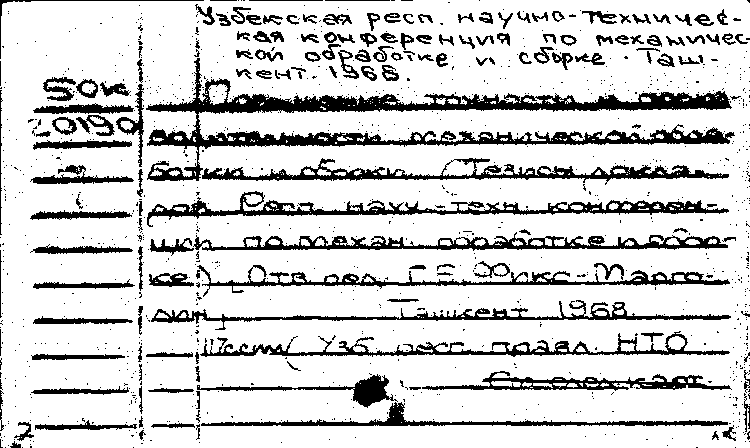 Узбекская респ. научно-техничес-
кая конференция по механичес-
кой обработке и сборке. Таш-
кент. 1968.
50к Повышение точности и произ-
20190 водительности механической обра-
ботки и сборки (Тезисы докла-
дов Респ. науч.-техн. конферен-
ции по механ. обработке и сбор-
ке). Отв. ред. Г.Б. Фикс-Марго-
лин. Ташкент 1968.
117 стр. Узб. респ. правл. НТО
См след карт.